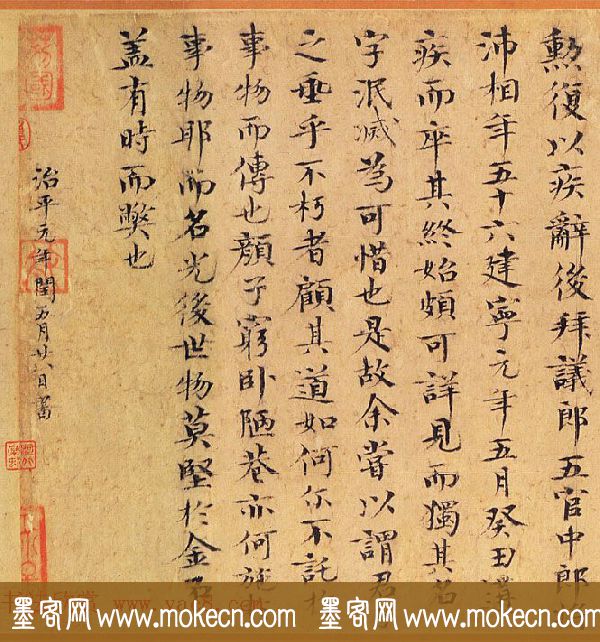 勲復以疾辭後拜議郎五官中郎
沛相年五十六建寧元年五月癸丑遘
疾而卒其終始頗可詳見而獨其名
字泯滅為可惜也是故余嘗以謂君
之垂乎不朽者顧其道如何尔不託於
事物而傳也顏子窮卧陋巷亦何施
事物耶而名光後世物莫堅於金石
盖有時而弊也
治平元年閏五月廿八日書
墨客网 www.mokecn.com
墨客网 www.mokecn.com